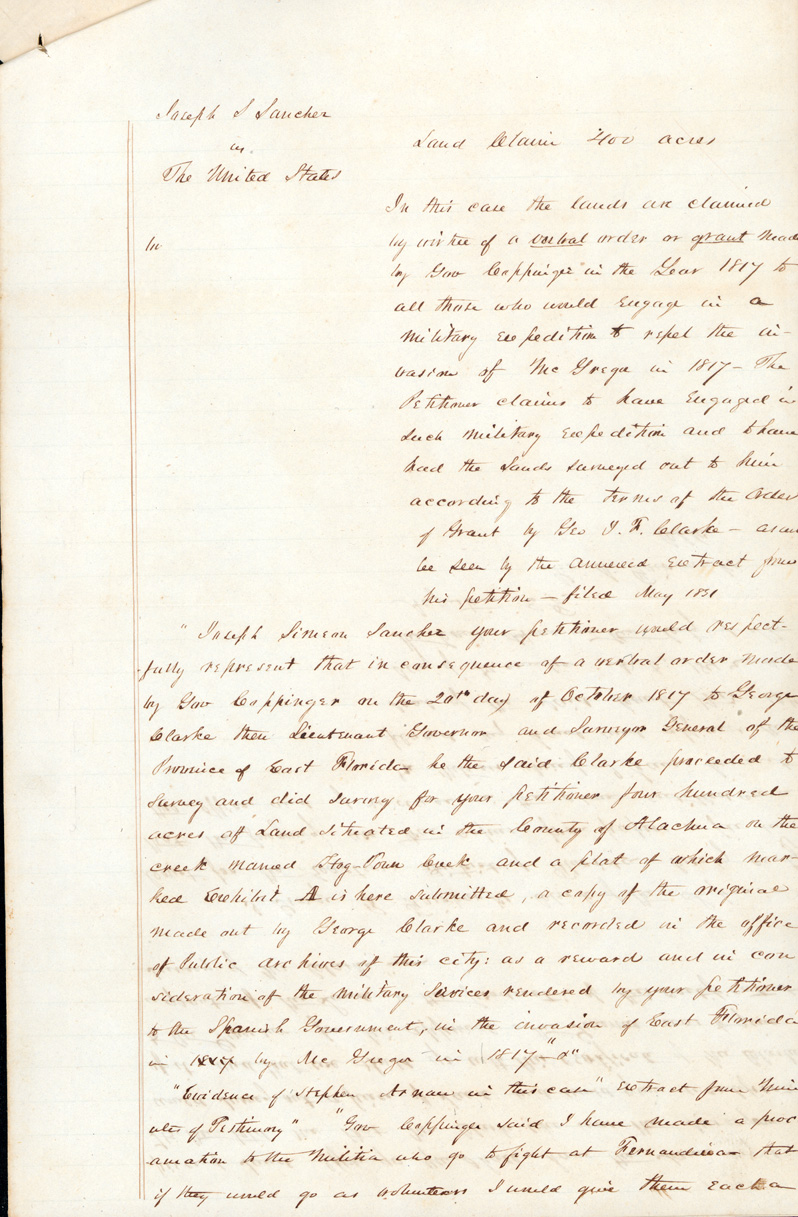 Joseph S Sanchez
vs.
The United States
Land Claim 400 acres
In this case the lands are claimed
by virtue of a verbal order or grant made
by Gov Coppinger in the Year 1817 to
all those who would Engage in a
Military Expedition to repel the in-
vasion of McGregor in 1817 - The
Petitioner claims to have Engaged in
such Military Expedition and to have
had the Lands surveyed out to him
according to the terms of the Order
of Grant by Geo J. F. Clarke - as can
be seen by the annexed Extract from
his petition - filed May 1831
"Joseph Simeon Sanchez your petitioner would respect-
fully represent that in consequence of a verbal order made
by Gov Coppinger on the 20th day of October 1817 to George
Clarke then Lieutenant Governor and Surveyor General of the
Province of East Florida he the said Clarke proceeded to
survey and did survey for your petitioner four hundred
acres of Land situated in the County of Alachua on the
creek named Hog-Town Creek and a plat of which mar-
ked Exhibit A is here submitted, a copy of the original
made out by George Clarke and recorded in the office
of Public Archives of this city: as a reward and in con
sideration of the Military Services rendered by your petitioner
to the Spanish Government, in the invasion of East Florida
in by Mc Gregor in 1817-"
"Evidence of Stephen Arnau in this case" Extract from Min
utes of Testimony" "Gov Coppinger said I have made a proc
amation to the Militia who go to fight at Fernandina that
if they would go as volunteers I would give them each a